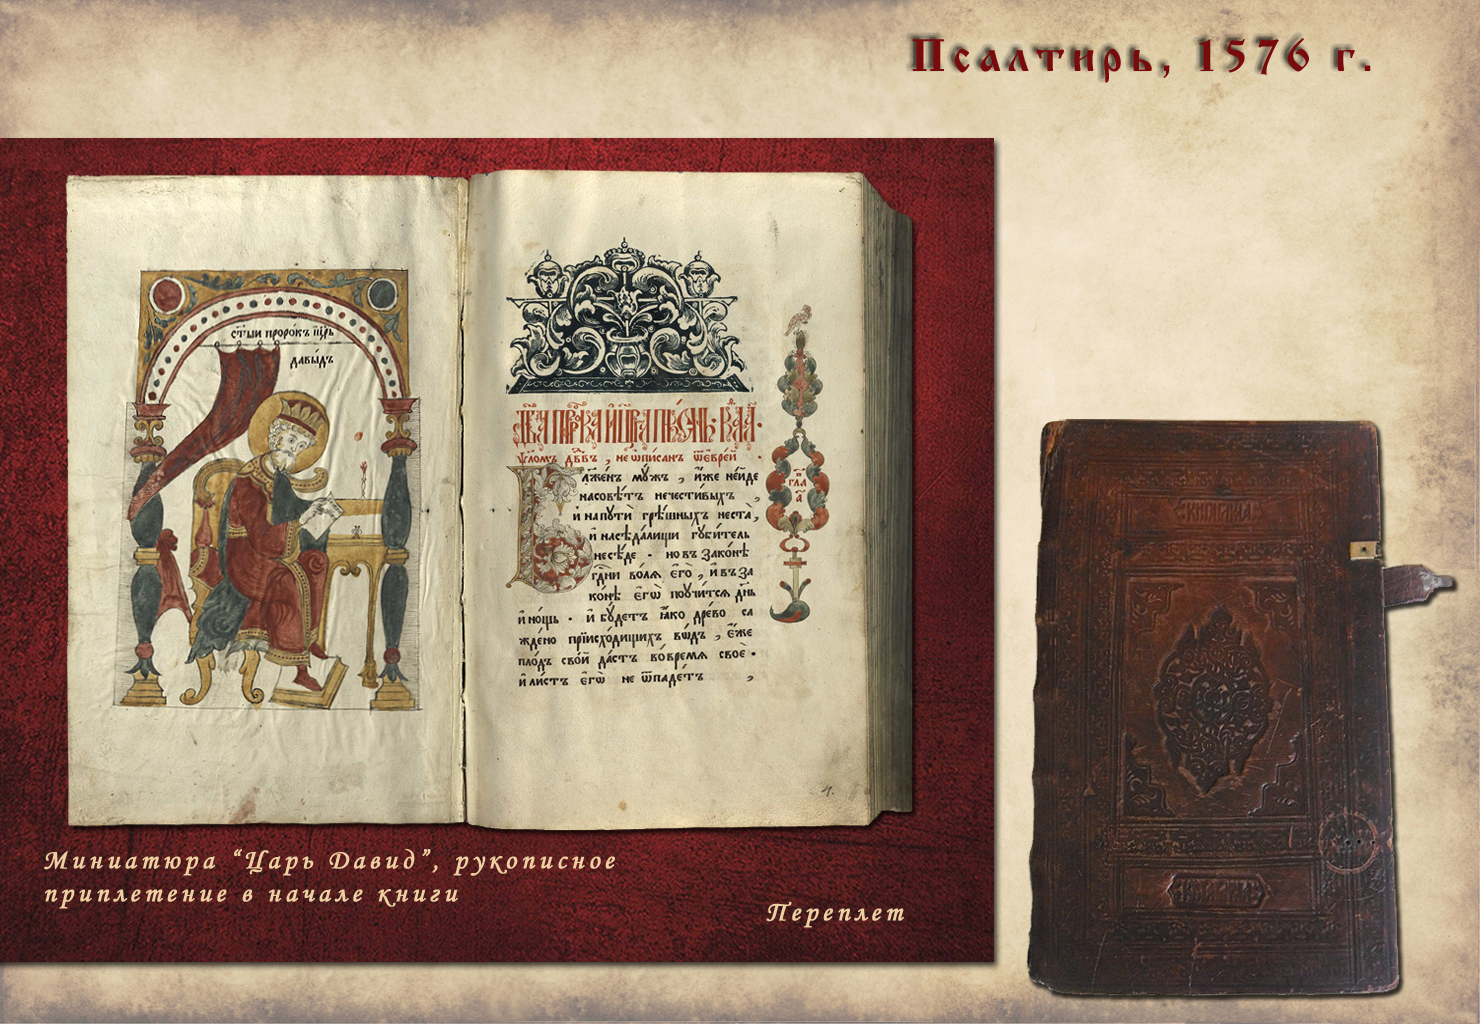 Псалтирь, 1576 г.
ст҃ыи пророкъ цр҃ь
давы́дъ
дв҃да прⷪ҇ро́ка и҆ цр҃ѧ́ пѣ́снь.
ѱло́мъ дв҃дꙋ, не ѡ҆пи́санъ ѿ є҆врє́й.
Бл҃же́нъ мꙋ́жъ, и҆́же не и҆́де
на совѣ́тъ нечести́выхъ,
и҆ на пꙋти̑ грѣ́шныхъ не ста̀,
и҆ на сѣда́лищи гꙋби́тель
не сѣ́де. но въ зако́нѣ
гдⷭ҇ни во́лѧ є҆гѡ̀, и҆ въ за
ко́нѣ є҆гѡ̀ поꙋчи́тсѧ дн҃ь
и҆ но́щь. и҆ бꙋ́детъ ꙗ҆́ко дре́во са
жде́но при и҆схо́дищихъ во́дъ, є҆́же
пло́дъ сво́й да́стъ во вре́мѧ своѐ.
и҆ ли́стъ є҆гѡ̀ не ѿпаде́тъ,
гла
а҃
Миниатюра “Царь Давид”, рукописное
приплетение в начале книги
Переплет